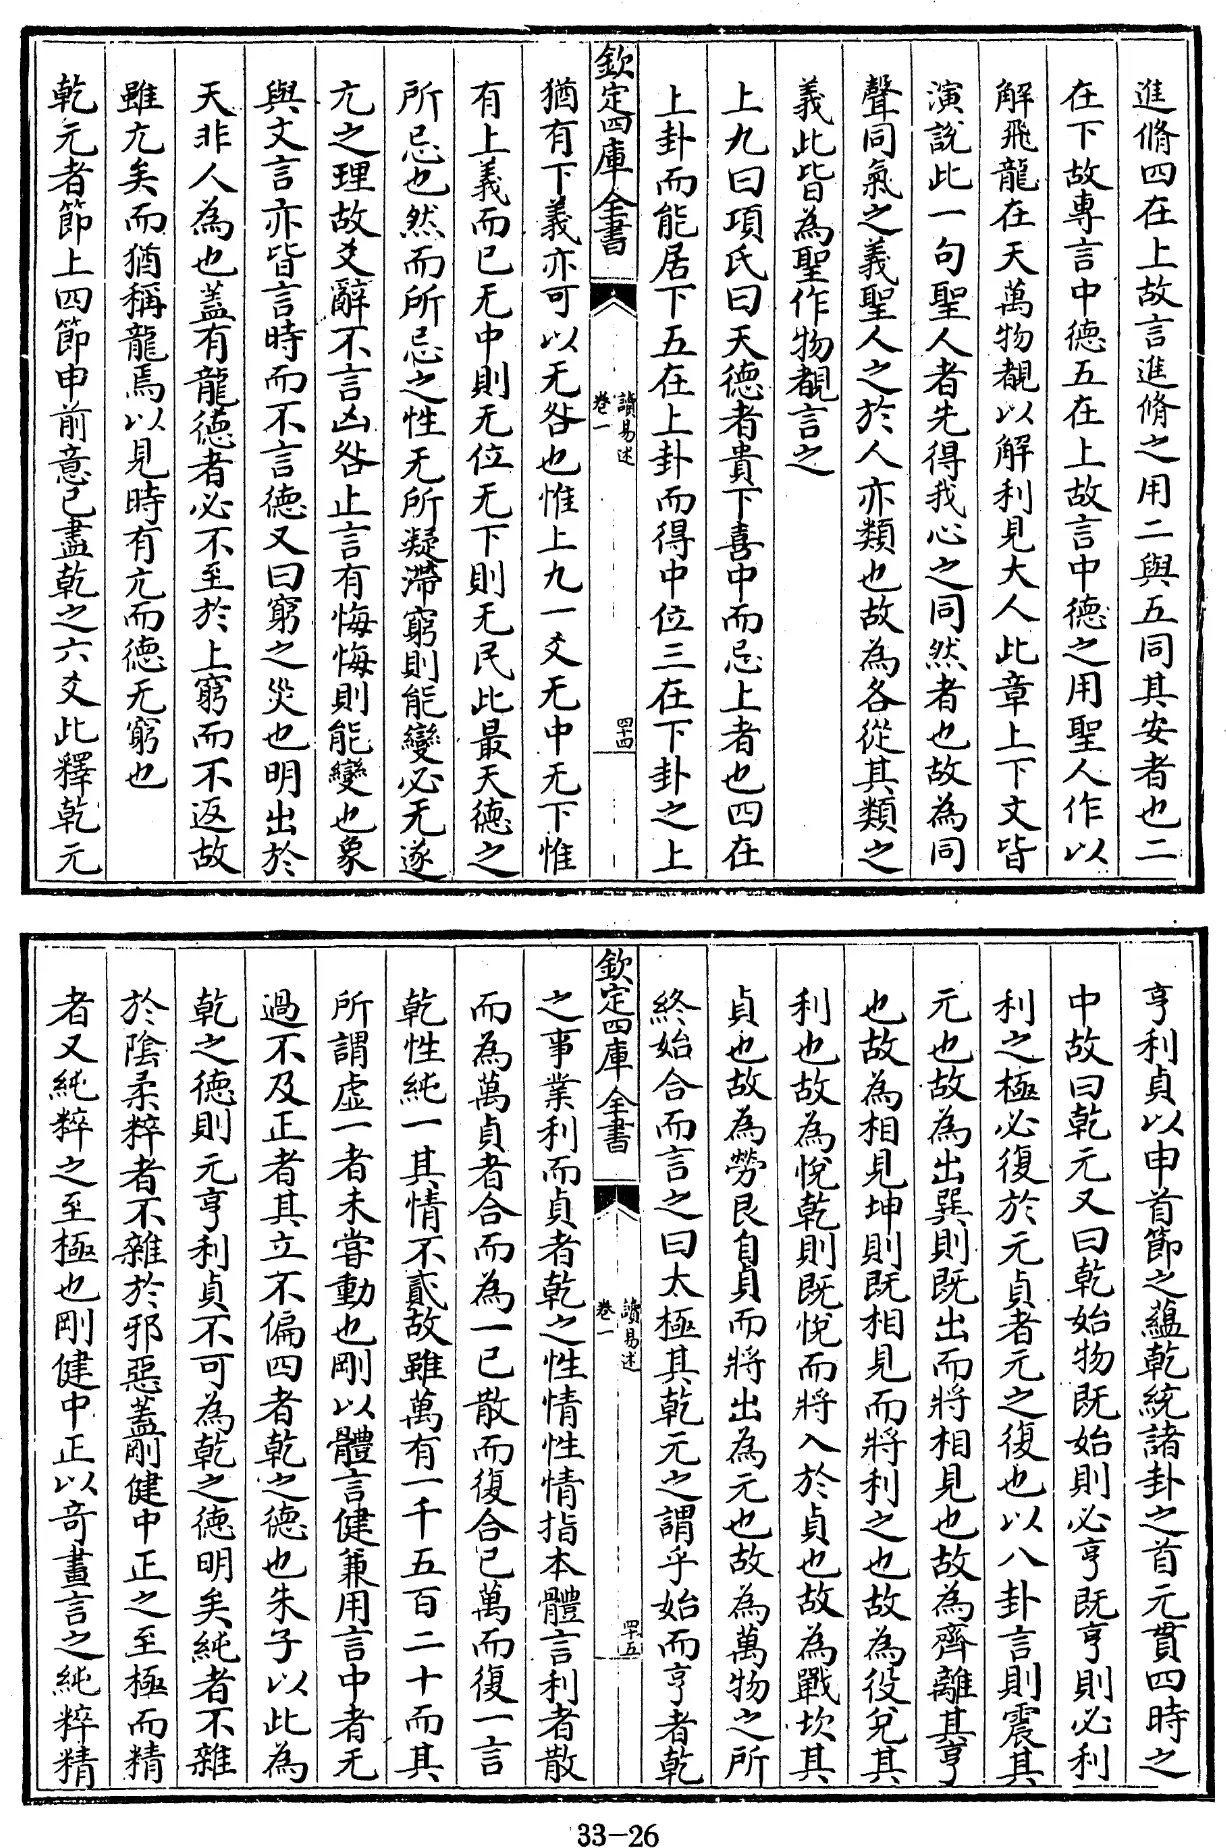 進脩四在上故言進脩之用二與五同其安者也二
在下故專言中德五在上故言中德之用聖人作以
解飛龍在天萬物覩以解利見大人此章上下文皆
演說此一句聖人者先得我心之同然者也故為同
聲同氣之義聖人之於人亦類也故為各從其類之
義此皆為聖作物覩言之
上九曰項氏曰天德者貴下喜中而忌上者也四在
上卦而能居下五在上卦而得中位三在下卦之上
欽定四庫全書
讀易述
卷一
四十四
猶有下義亦可以无咎也惟上九一爻无中无下惟
有上義而已无中則无位无下則无民此最天德之
所忌也然而所忌之性无所凝滯窮則能變必无遂
亢之理故爻辭不言凶咎止言有悔悔則能變也象
與文言亦皆言時而不言德又曰窮之災也明出於
天非人為也蓋有龍德者必不至於上窮而不返故
雖亢矣而猶稱龍焉以見時有亢而德无窮也
乾元者節上四節申前意已盡乾之六爻此釋乾元
亨利貞以申首節之蘊乾統諸卦之首元貫四時之
中故曰乾元又曰乾始物既始則必亨既亨則必利
利之極必復於元貞者元之復也以八卦言則震其
元也故為出巽則既出而將相見也故為齊離其亨
也故為相見坤則既相見而將利之也故為役兌其
利也故為悅乾則既悅而將入於貞也故為戰坎其
貞也故為勞艮自貞而將出為元也故為萬物之所
終始合而言之曰太極其乾元之謂乎始而亨者乾
欽定四庫全書
讀易述
卷一
四十五
之事業利而貞者乾之性情性情指本體言利者散
而為萬貞者合而為一已散而復合已萬而復一言
乾性純一其情不貳故雖萬有一千五百二十而其
所謂虛一者未嘗動也剛以體言健兼用言中者无
過不及正者其立不偏四者乾之德也朱子以此為
乾之德則元亨利貞不可為乾之德明矣純者不雜
於陰柔粹者不雜於邪惡蓋剛健中正之至極而精
者又純粹之至極也剛健中正以奇畫言之純粹精
33-26